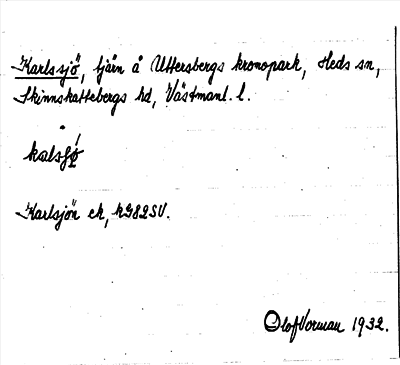 Karlssjö, tjärn å Uttersbergs kronopark, Heds sn,
Skinnskattebergs hd, Västmanl. l.
Karlsjön ek,
Olof Vorman 1932.